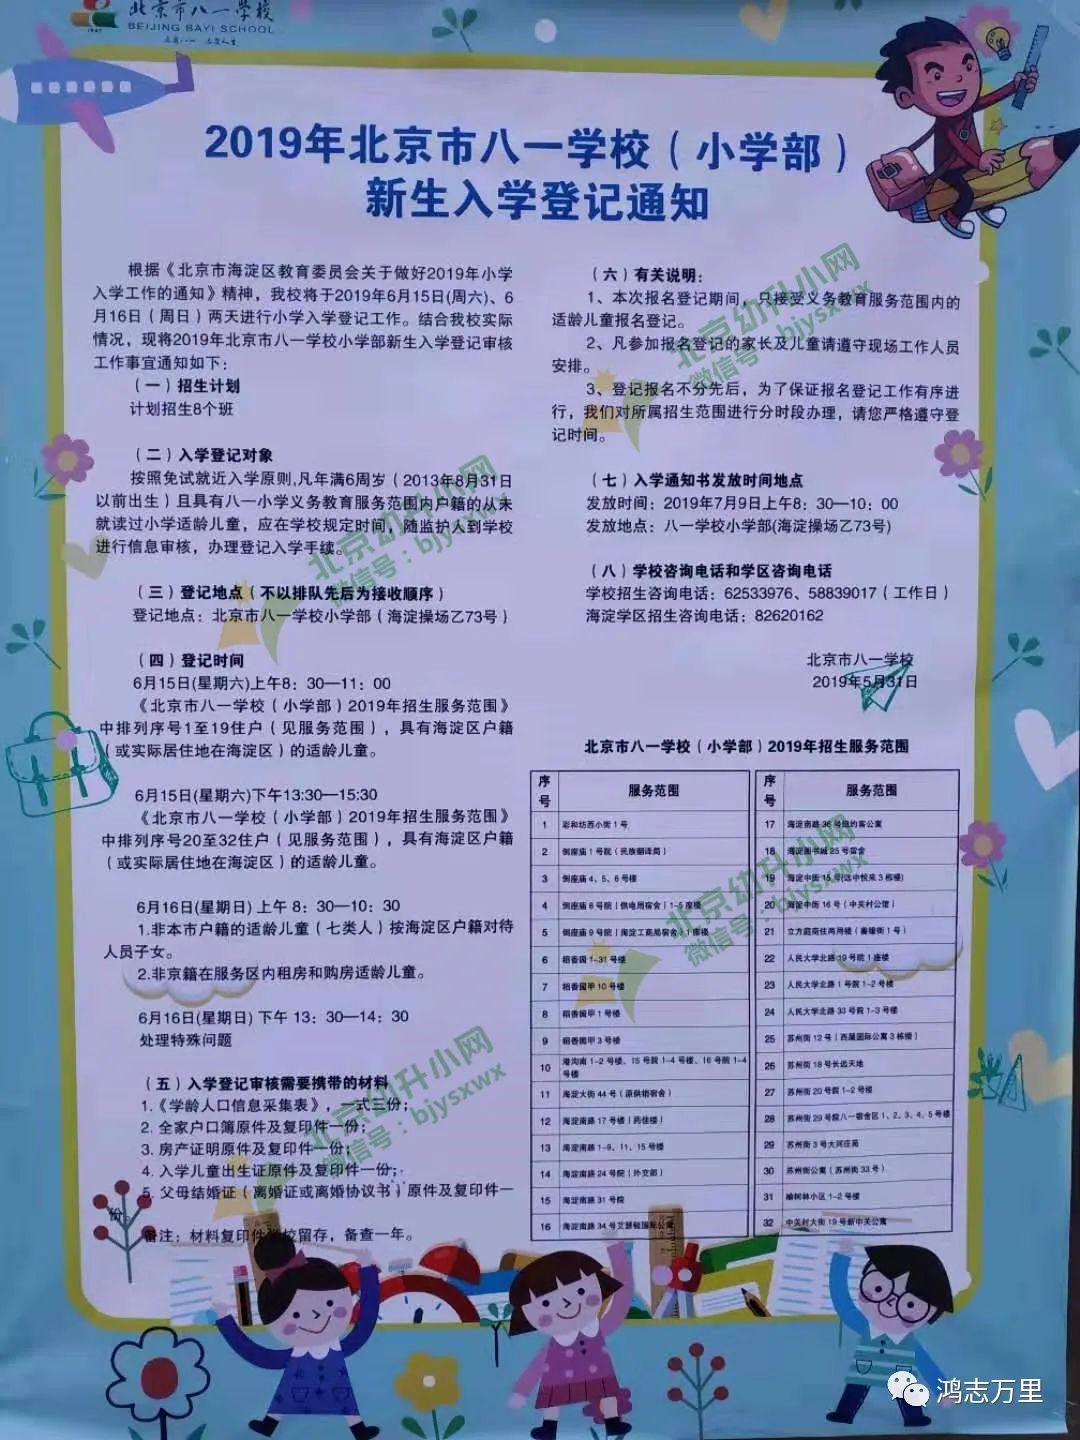 北京市八一学校
BEIJING BAYI SCHOOL
2019年北京市八一学校（小学部）
新生入学登记通知
根据《北京市海淀区教育委员会关于做好2019年小学
入学工作的通知》精神，我校将于2019年6月15日(周六)、6
月16日（周日）两天进行小学入学登记工作。结合我校实际
情况，现将2019年北京市八一学校小学部新生入学登记审核
工作事宜通知如下：
（一）招生计划
计划招生8个班
（二）入学登记对象
按照免试就近入学原则,凡年满6周岁（2013年8月31日
以前出生）且具有八一小学义务教育服务范围内户籍的从未
就读过小学适龄儿童，应在学校规定时间，随监护人到学校
进行信息审核，办理登记入学手续。
（三）登记地点（不以排队先后为接收顺序）
登记地点：北京市八一学校小学部（海淀操场乙73号）
（四）登记时间
6月15日(星期六)上午8：30—11：00
《北京市八一学校（小学部）2019年招生服务范围》
中排列序号1至19住户（见服务范围），具有海淀区户籍
（或实际居住地在海淀区）的适龄儿童。
6月15日(星期六)下午13:30—15:30
《北京市八一学校（小学部）2019年招生服务范围》
中排列序号20至32住户（见服务范围），具有海淀区户籍
（或实际居住地在海淀区）的适龄儿童。
6月16日(星期日) 上午 8：30—10：30
1.非本市户籍的适龄儿童（七类人）按海淀区户籍对待
人员子女。
2.非京籍在服务区内租房和购房适龄儿童。
6月16日(星期日) 下午 13：30—14：30
处理特殊问题
（五）入学登记审核需要携带的材料
1.《学龄人口信息采集表》，一式三份；
2. 全家户口簿原件及复印件一份；
3. 房产证明原件及复印件一份；
4. 入学儿童出生证原件及复印件一份；
5. 父母结婚证（离婚证或离婚协议书）原件及复印件一
份。
备注：材料复印件学校留存，备查一年。
（六）有关说明：
1、本次报名登记期间，只接受义务教育服务范围内的
适龄儿童报名登记。
2、凡参加报名登记的家长及儿童请遵守现场工作人员
安排。
3、登记报名不分先后，为了保证报名登记工作有序进
行，我们对所属招生范围进行分时段办理，请您严格遵守登
记时间。
（七）入学通知书发放时间地点
发放时间：2019年7月9日上午8：30—10：00
发放地点：八一学校小学部(海淀操场乙73号)
（八）学校咨询电话和学区咨询电话
学校招生咨询电话：62533976、58839017（工作日）
海淀学区招生咨询电话：82620162
北京市八一学校
2019年5月31日
北京市八一学校（小学部）2019年招生服务范围
序号 服务范围
1 彩和坊西小街 1 号
2 倒座庙 1 号院（民族翻译局）
3 倒座庙 4、5、6 号楼
4 倒座庙 8 号院（供电局宿舍）1-5 座楼
5 倒座庙 9 号院（海淀工商局宿舍）1 座楼
6 稻香园 1-31 号楼
7 稻香园甲 10 号楼
8 稻香园甲 1 号楼
9 稻香园甲 3 号楼
10 港沟南 1-2 号楼、15 号院 1-4 号楼、16 号院 1-4
号楼
11 海淀大街 44 号（原供销宿舍）
12 海淀南路 17 号楼（药佳楼）
13 海淀南路 1-9、11、15 号楼
14 海淀南路 24 号院（外交部）
15 海淀南路 31 号院
16 海淀南路 34 号艾瑟顿国际公寓
序号 服务范围
17 海淀南路 36 号纽约客公寓
18 海淀图书城 25 号宿舍
19 海淀中街 15 号(远中悦来 3 栋楼)
20 海淀中街 16 号（中关村公馆）
21 立方庭商住两用楼（善缘街 1 号）
22 人民大学北路 19 号院 1 座楼
23 人民大学北路 1 号院 1-2 号楼
24 人民大学北路 33 号院 1-3 号楼
25 苏州街 12 号（西屋国际公寓 3 栋楼）
26 苏州街 18 号长远天地
27 苏州街 20 号院 1-2 号楼
28 苏州街 29 号院八一宿舍区 1、2、3、4、5 号楼
29 苏州街 3 号大河庄苑
30 苏州街公寓（苏州街 33 号）
31 榆树林小区 1-2 号楼
32 中关村大街 19 号新中关公寓
北京幼升小网
微信号：bjysxwx
北京幼升小网
微信号：bjysxwx
北京幼升小网
微信号：bjysxwx
北京幼升小网
微信号：bjysxwx
鸿志万里